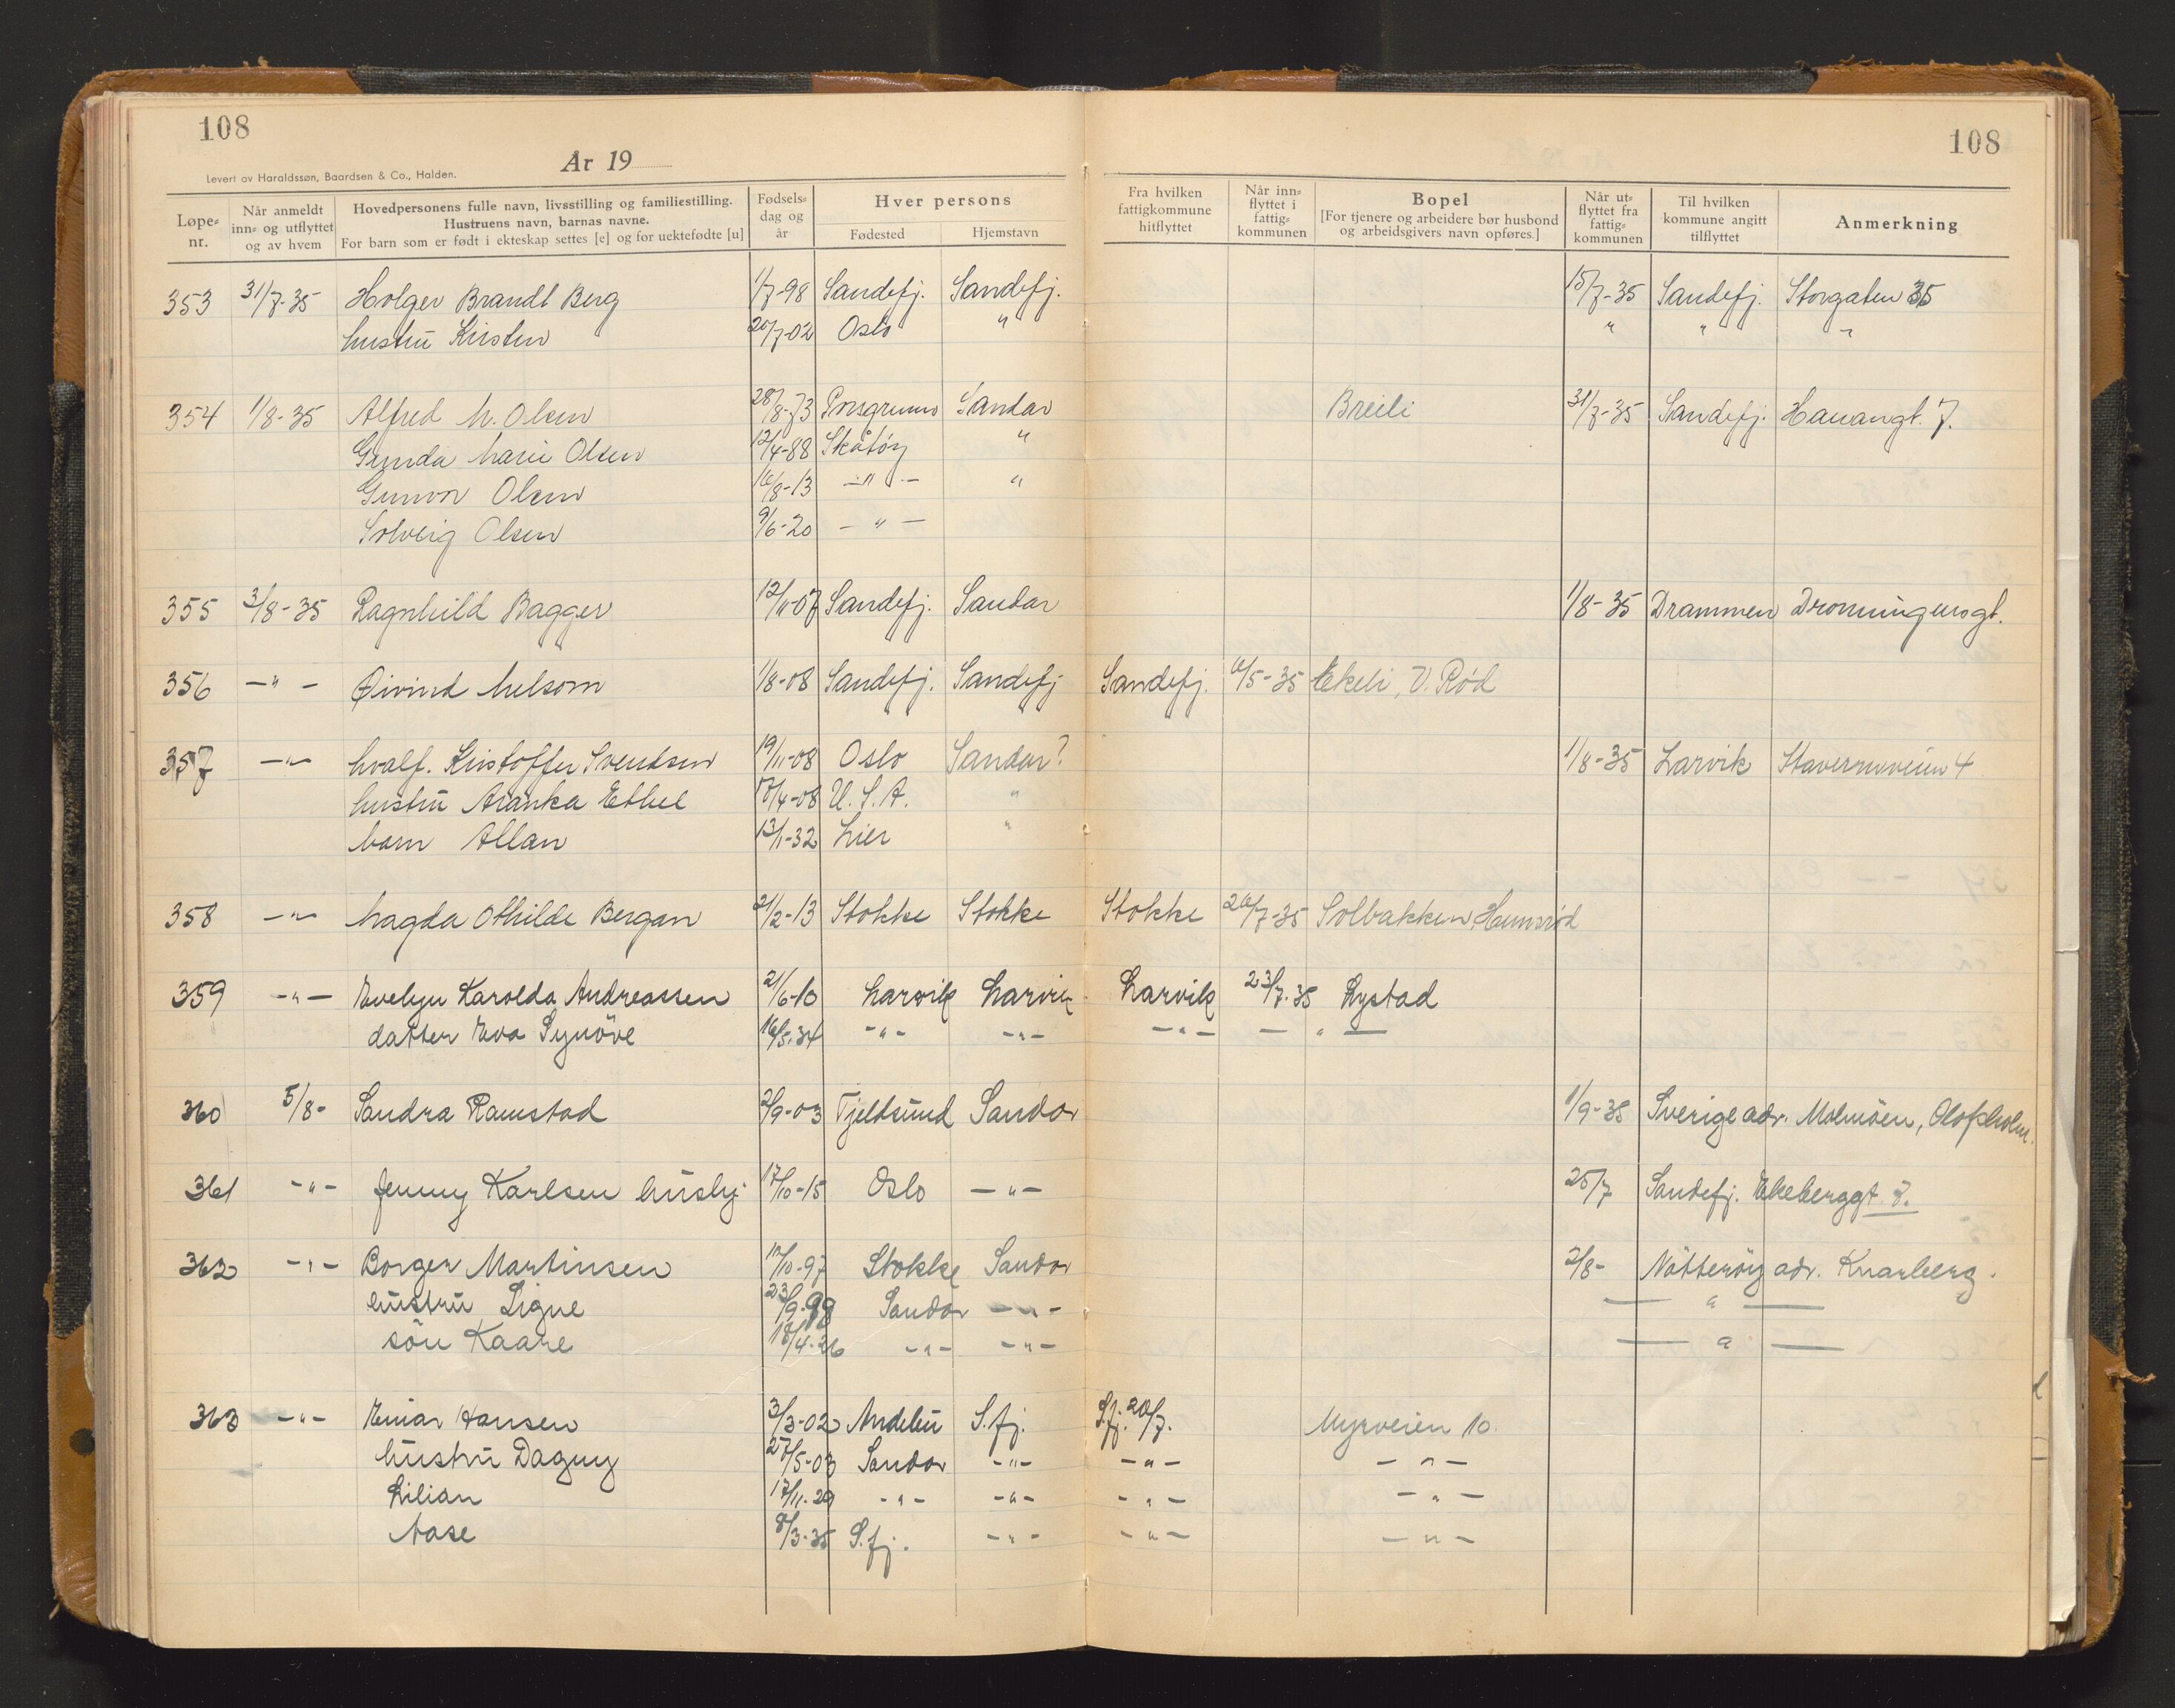 108
108
År 19
Levert av Haraldssøn, Baardsen & Co., Halden.
Løpe-nr. Når anmeldt inn- og utflyttet og av hvem Hovedpersonens fulle navn, livsstilling og familiestilling. Hustruens navn, barnas navne. For barn som er født i ekteskap settes [e] og for uektefødte [u] Fødsels-dag og år Hver persons Fødested Hjemstavn Fra hvilken fattigkommune hitflyttet Når inn-flyttet i fattig-kommunen Bopel [For tjenere og arbeidere bør husbond og arbeidsgivers navn opføres.] Når ut-flyttet fra fattig-kommunen Til hvilken kommune angitt tilflyttet Anmerkning
353 31/7-35 Holger Brandt Berg 1/7-98 Sandefj. Sandefj. 15/7-35 Sandefj. Storgaten 35
hustru Kirsten 20/7-02 Oslo " " " "
354 1/8-35 Alfred M. Olsen 28/8-73 Porsgrunn Sandar Breili 31/7-35 Sandefj. Hauangt. 7.
Gunda Marie Olsen 12/4-88 Skåtøy "
Gunvor Olsen 16/8-13 -"- "
Solveig Olsen 9/6-20 -"-
355 3/8-35 Ragnhild Bagger 12/11-07 Sandefj. Sandar 1/8-35 Drammen Dronningensgt.
356 -"- Øivind Melsom 1/8-08 Sandefj. Sandefj Sandefj. /5-35 Ekeli, V. Rød
357 -"- hvalf. Kristoffer Svendsen 19/11-08 Oslo Sandar? 1/8-35 Larvik Stavernsveien 4
hustru Aranka Ethel /4-08 U.S.A. "
barn Allan 13/1-32 Lier "
358 -"- Magda Othilde Bergan 21/2-13 Stokke Stokke Stokke 26/7-35 Solbakken, Hunsrød
359 -"- Evelyn Karolda Andreassen 21/6-10 Larvik Larvik Larvik 23/7-35 Lystad
datter Eva Synöve 16/5-34 -"- -"- -"- -"-
360 5/8- Sandra Ramstad 2/9-03 Tjeldsund Sandar 1/9-35 Sverige adr. Malmöen,
361 -"- Jenny Karlsen hushj. 17/10-15 Oslo -"- 25/7 Sandefj. Ekeberggt 7.
362 -"- Borger Martinsen /10-97 Stokke Sandar 2/8- Nötteröy adr. Knarberg.
hustru Signe 23/9-98 Sandar -"- -"-
sön Kaare 18/4-26 -"- -"- -"-
363 -"- Einar Hansen 3/3-02 Andebu S.fj. S.fj. 20/7. Myrveien 10.
hustru Dagny 27/5-03 Sandar -"- -"- -"-
Lilian 17/11-29 -"- -"- -"- -"-
Aase 8/3-35 S.fj. -"- -"- -"-